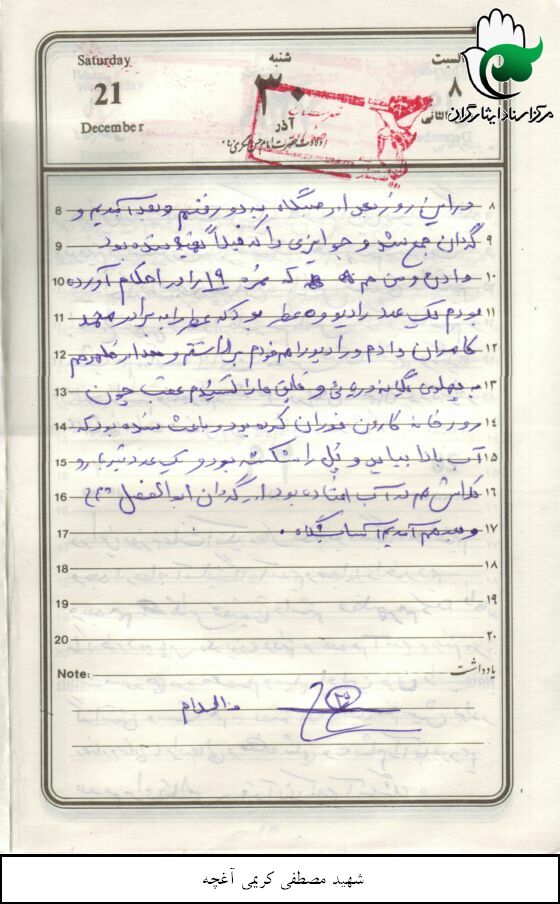 Saturday
21
December
شنبه
۳۰
آذر
ولادت حضرت امام حسن عسکری
السبت
۸
الثانی
مرکز اسناد ایثارگران
8 در این روز بعد از صبگاه به دو رفتیم و بعد آمدیم و ۸
9 گردان جمع شد و جوایزی را که قبلاً تهیه شده بود ۹
10 دادن و من هم که نمره ۱۹ را در احکام آورده ۱۰
11 بودم یک عدد رادیو و عطر بود که عطر را به برادر محمد ۱۱
12 کامران دادم و رادیو را هم خودم برداشتم و بعد از ظهر هم ۱۲
13 به و قایق ها را کشیدیم عقب چون ۱۳
14 رودخانه کارون فوران کرده بود و باعث شده بود که ۱۴
15 آب بالا بیاید و پل را شکسته بود و یک عدد تیربار و ۱۵
16 هم در آب افتاده بود از گردان ابوالفضل ۱۶
17 و بعد هم آمدیم آسایشگاه . ۱۷
18 ۱۸
19 ۱۹
20 ۲۰
Note: یادداشت
والسلام
شهید مصطفی کریمی آغچه